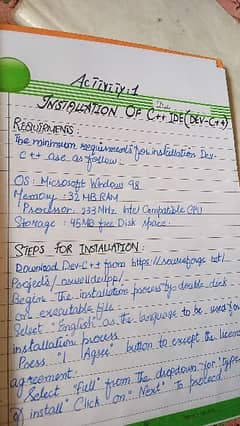 ACTIVITY:1
INSTALLATION OF C++ IDE (DEV-C++)
REQUIRMENTS:
The minimum requirments for installation Dev-
C++ are as follow:
OS: Microsoft Window 98
Memory: 32 MB RAM
Processor: 233MHz Intel Compatible CPU
Storage: 45MB free Disk space.
STEPS FOR INSTALLATION:
Download Dev-C++ from https://sourceforge.net/
Projects/orwelldevcpp/
Begin the installation process by double click
on executable file.
Select "English" as the language to be used for
installation process
Press "I Agree" button to except the license
agreement.
Select "Full" from the dropdown for "Type
of install" Click on "Next" to proceed.